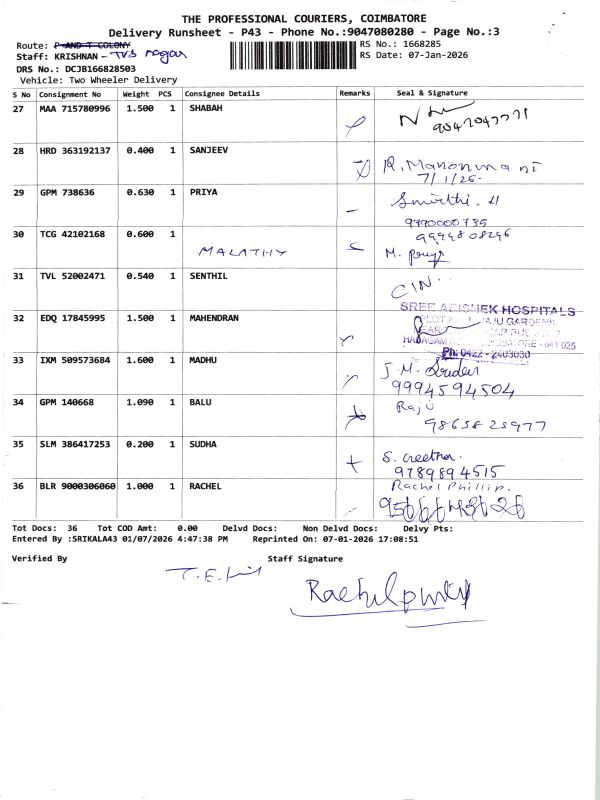 THE PROFESSIONAL COURIERS, COIMBATORE
Delivery Runsheet - P43 - Phone No.:9047080280 - Page No.:3
Route: P AND T COLONY
TVS nagar
Staff: KRISHNAN -
RS No.: 1668285
RS Date: 07-Jan-2026
DRS No.: DCJB166828503
Vehicle: Two Wheeler Delivery
S No Consignment No Weight PCS Consignee Details Remarks Seal & Signature
27 MAA 715780996 1.500 1 SHABAH
28 HRD 363192137 0.400 1 SANJEEV
R. Manonmani
7/1/26.
29 GPM 738636 0.630 1 PRIYA
9790000735
30 TCG 42102168 0.600 1
MALATHY
9994808246
31 TVL 52002471 0.540 1 SENTHIL
32 EDQ 17845995 1.500 1 MAHENDRAN
SREE ABISHEK HOSPITALS
Ph: 0422 - 2403030
33 IXM 509573684 1.600 1 MADHU
9994594504
34 GPM 140668 1.090 1 BALU
Raju
9865823977
35 SLM 386417253 0.200 1 SUDHA
S. Geetha.
9789894515
36 BLR 9000306060 1.000 1 RACHEL
Rachel Phillip.
Tot Docs: 36 Tot COD Amt: 0.00 Delvd Docs: Non Delvd Docs: Delvy Pts:
Entered By :SRIKALA43 01/07/2026 4:47:38 PM Reprinted On: 07-01-2026 17:08:51
Verified By Staff Signature